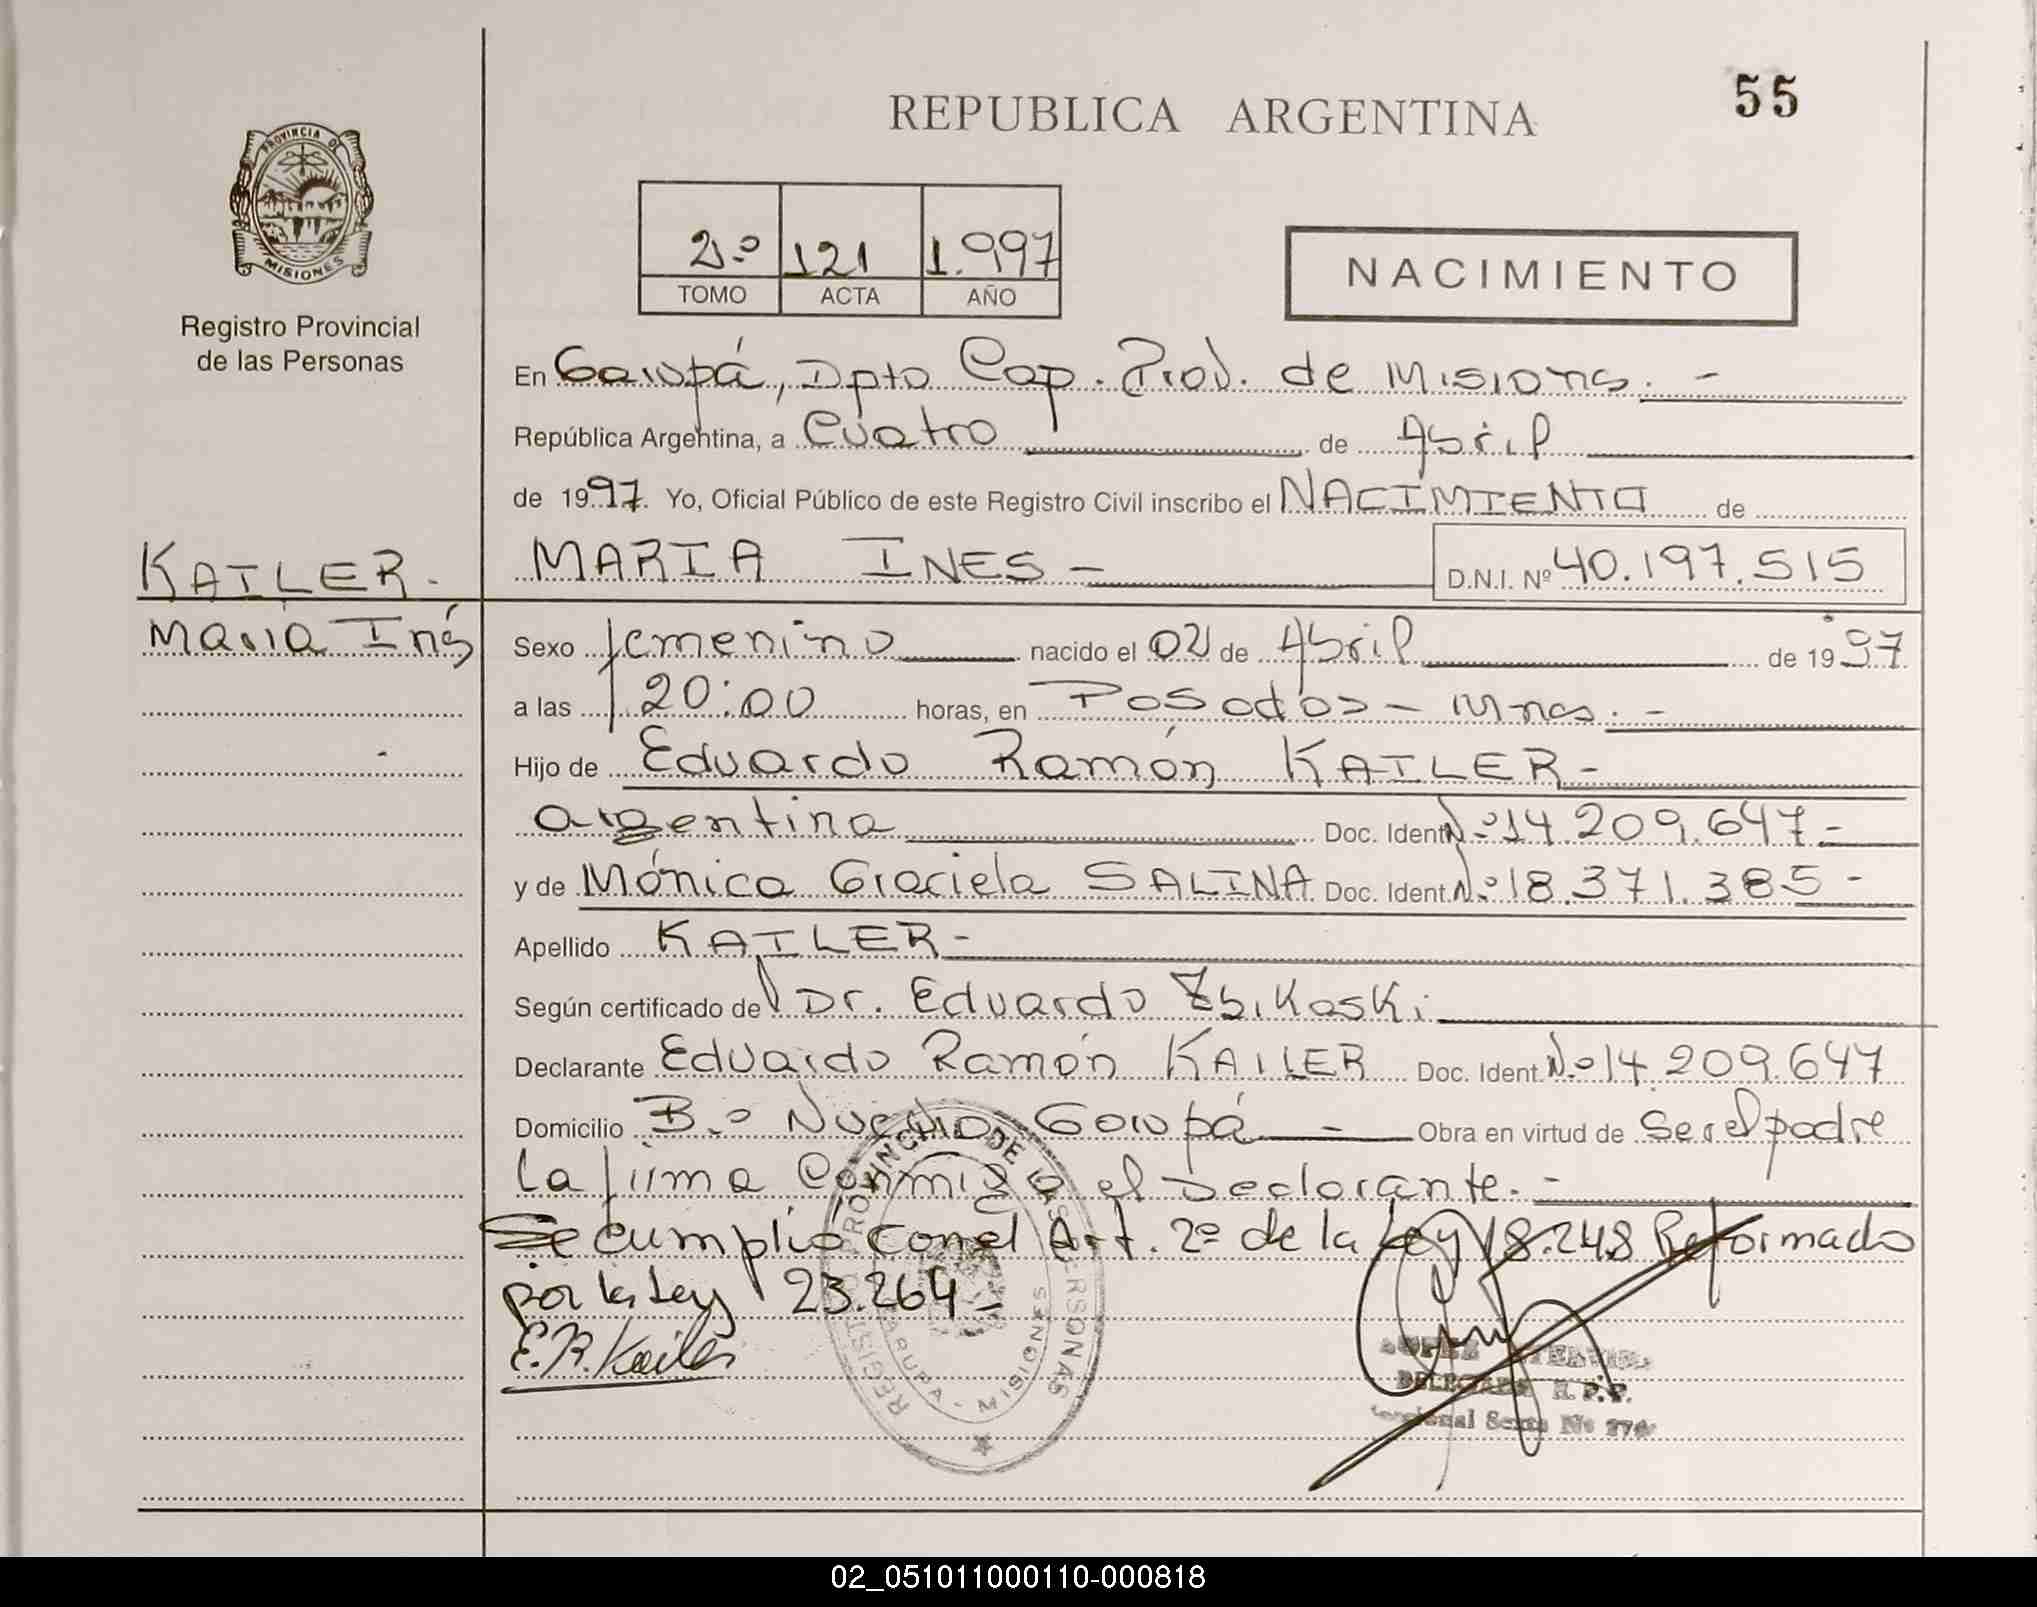 55
REPUBLICA ARGENTINA
PROVINCIA DE
MISIONES
Registro Provincial
de las Personas
2º 121 1.997
TOMO ACTA AÑO
NACIMIENTO
En Garupá, Dpto Cap. Prov. de Misiones. -
República Argentina, a Cuatro de Abril
de 1997. Yo, Oficial Público de este Registro Civil inscribo el NACIMIENTO de
KAILER.
MARIA INES - D.N.I. Nº 40.197.515
Maria Inés
Sexo femenino nacido el 02 de Abril de 1997
a las 20:00 horas, en Posadas - Mnes. -
Hijo de Eduardo Ramón KAILER -
argentina Doc. Ident Nº 14.209.647 -
y de Mónica Graciela SALINA Doc. Ident. Nº 18.371.385 -
Apellido KAILER -
Según certificado de Dr. Eduardo Zbikoski
Declarante Eduardo Ramón KAILER Doc. Ident. Nº 14.209.647
Domicilio Bº Nuestro Garupá - Obra en virtud de Ser el padre
La firma Conmigo el Declarante. -
Se cumplió con el Art. 2º de la Ley 18.248 Reformado
por la Ley 23.264 -
E.R. Kailer
REGISTRO PROVINCIAL DE LAS PERSONAS
GARUPA - MISIONES
LOPEZ
DELEGADA R. P. P.
02_051011000110-000818